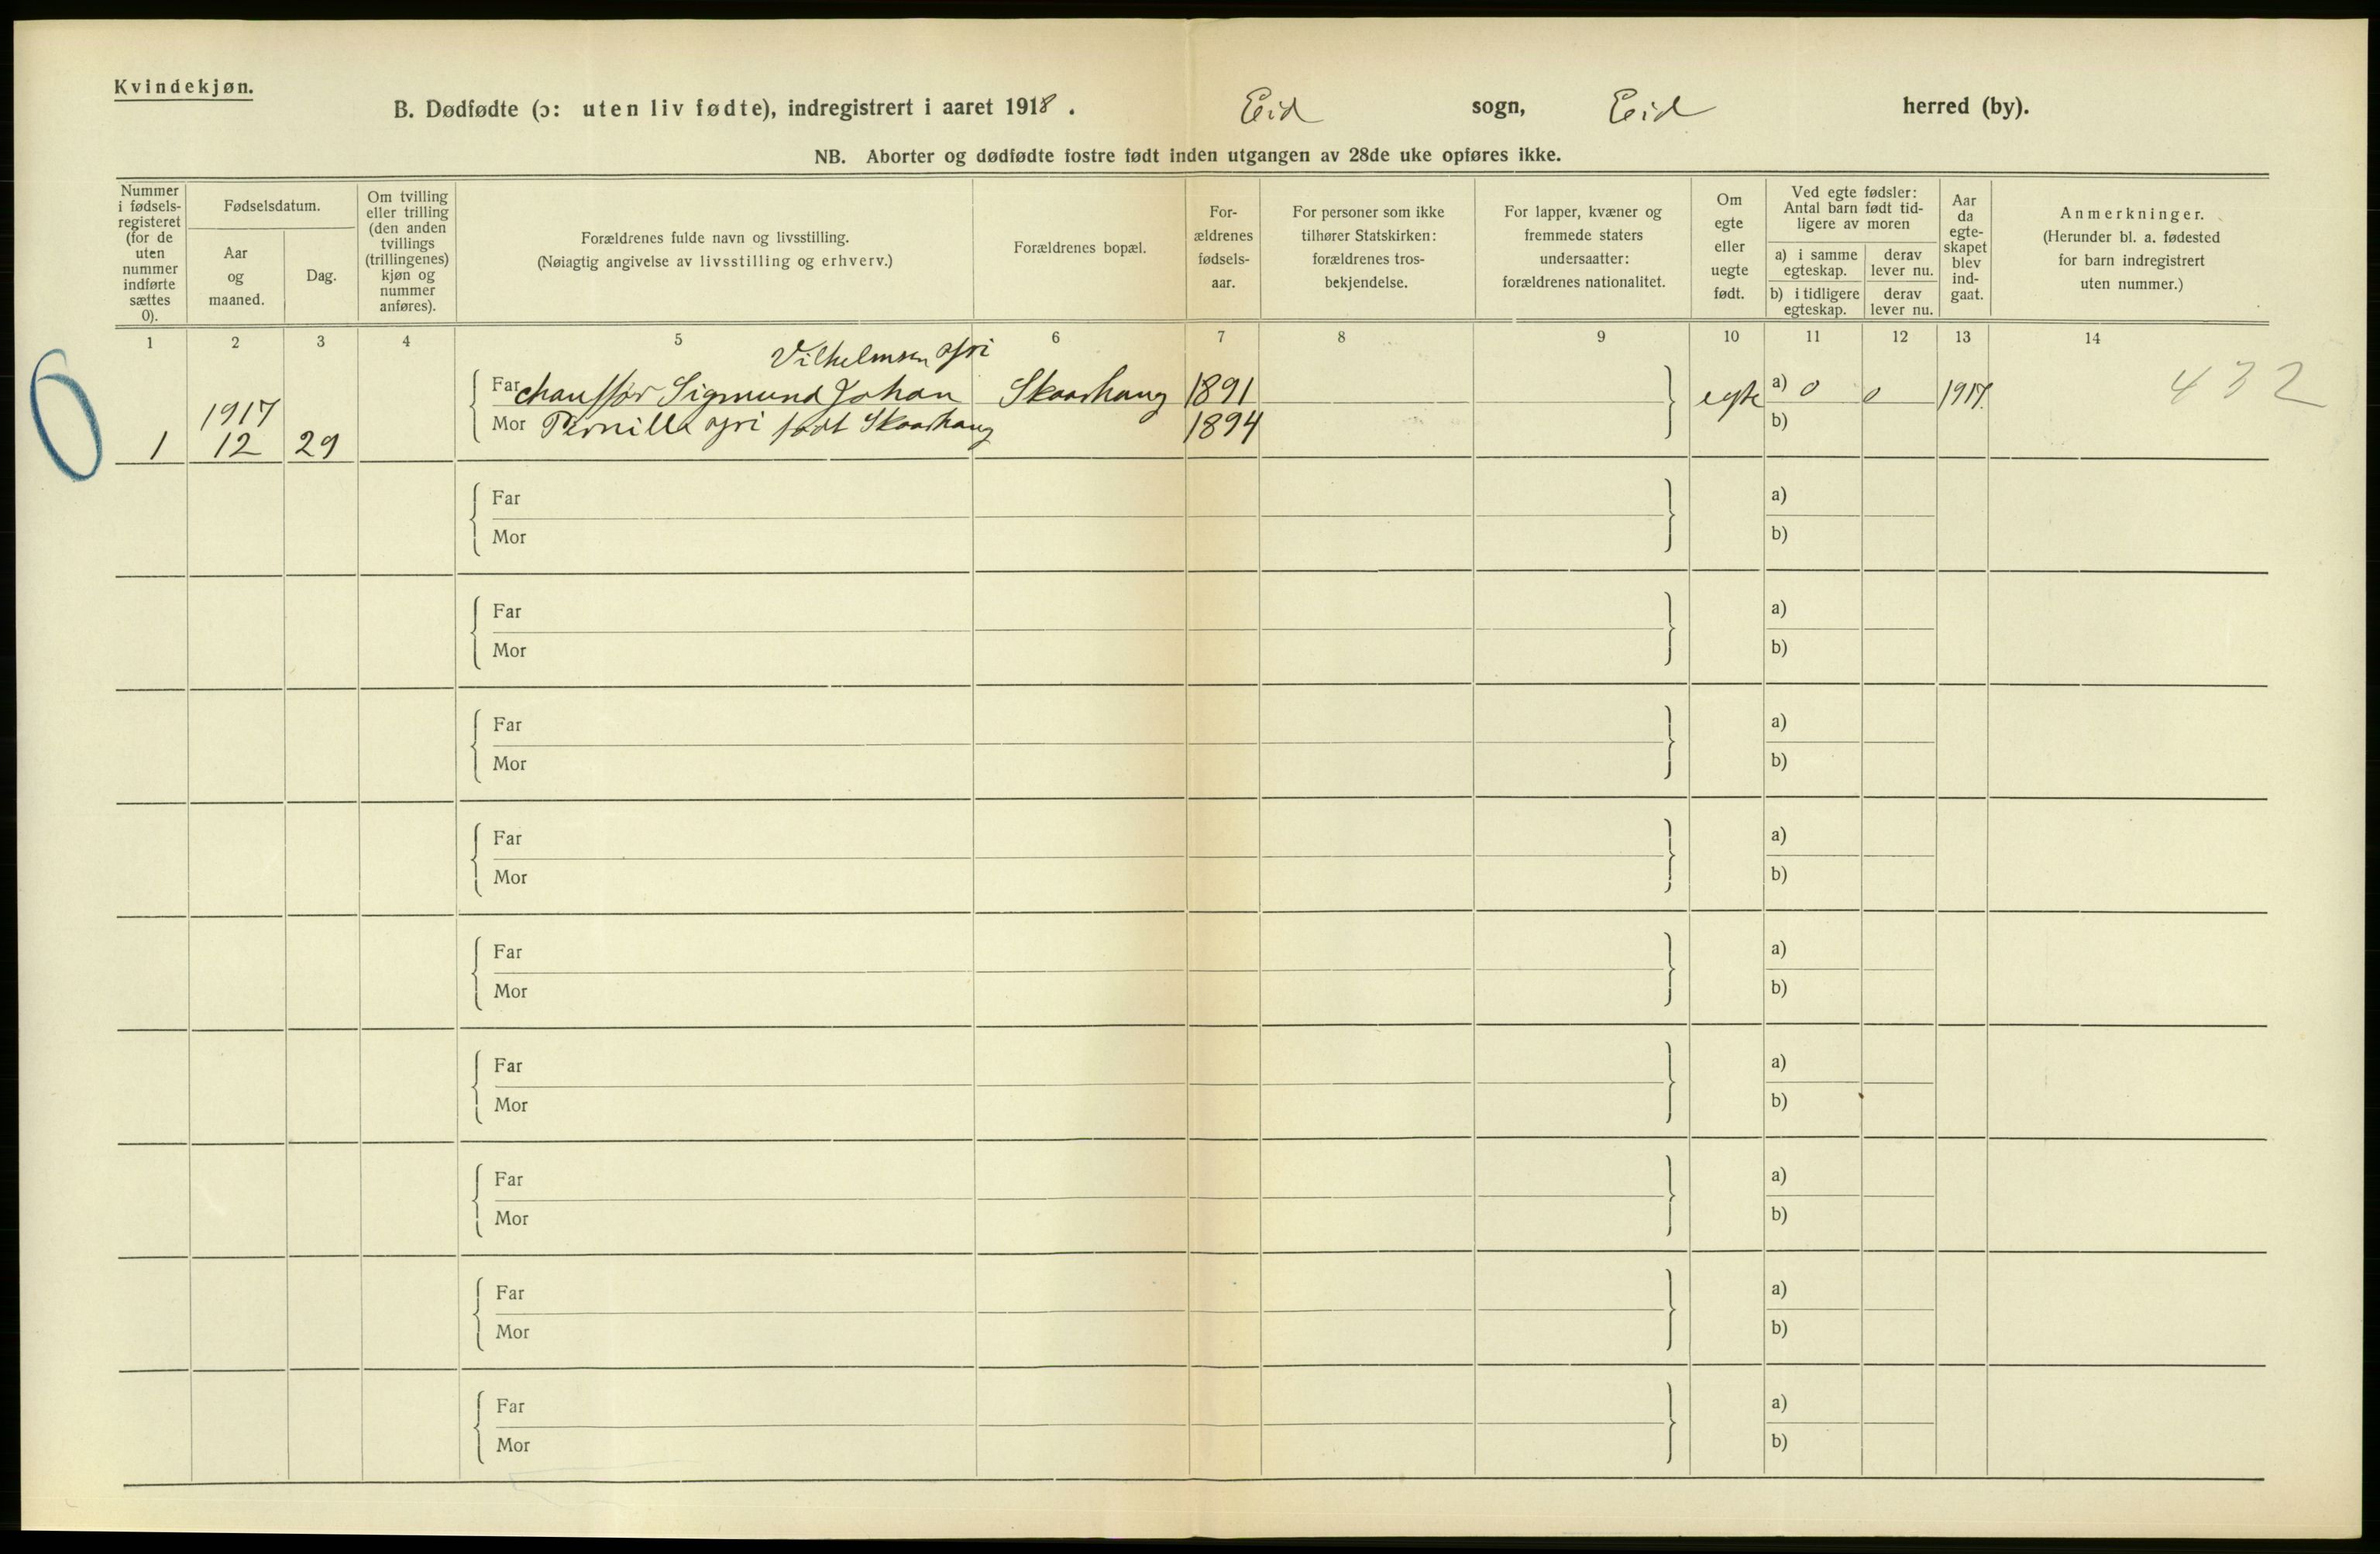 Kvindekjøn.
B. Dødfødte (ɔ: uten liv fødte), indregistrert i aaret 1918.
Eid sogn, Eid herred (by).
NB. Aborter og dødfødte fostre født inden utgangen av 28de uke opføres ikke.
Nummer
i fødsels-
registeret
(for de
uten
nummer
indførte
sættes
0).
Fødselsdatum.
Aar
og
maaned.
Dag.
Om tvilling
eller trilling
(den anden
tvillings
(trillingenes)
kjøn og
nummer
anføres).
Forældrenes fulde navn og livsstilling.
(Nøiagtig angivelse av livsstilling og erhverv.)
Forældrenes bopæl.
For-
ældrenes
fødsels-
aar.
For personer som ikke
tilhører Statskirken:
forældrenes tros-
bekjendelse.
For lapper, kvæner og
fremmede staters
undersaatter:
forældrenes nationalitet.
Om
egte
eller
uegte
født.
Ved egte fødsler:
Antal barn født tid-
ligere av moren
a) i samme
egteskap.
derav
lever nu.
b) i tidligere
egteskap.
derav
lever nu.
Aar
da
egte-
skapet
blev
ind-
gaat.
Anmerkninger.
(Herunder bl. a. fødested
for barn indregistrert
uten nummer.)
1 2 3 4 5 6 7 8 9 10 11 12 13 14
0
Vilhelmsen
Far chauffør Sigmund Johan Skaarhaug 1891 egte a) 0 0 1917. 432
1917
Mor Pernille født Skaarhaug 1894 b)
1 12 29
Far a)
Mor b)
Far a)
Mor b)
Far a)
Mor b)
Far a)
Mor b)
Far a)
Mor b)
Far a)
Mor b)
Far a)
Mor b)
Far a)
Mor b)
Far a)
Mor b)